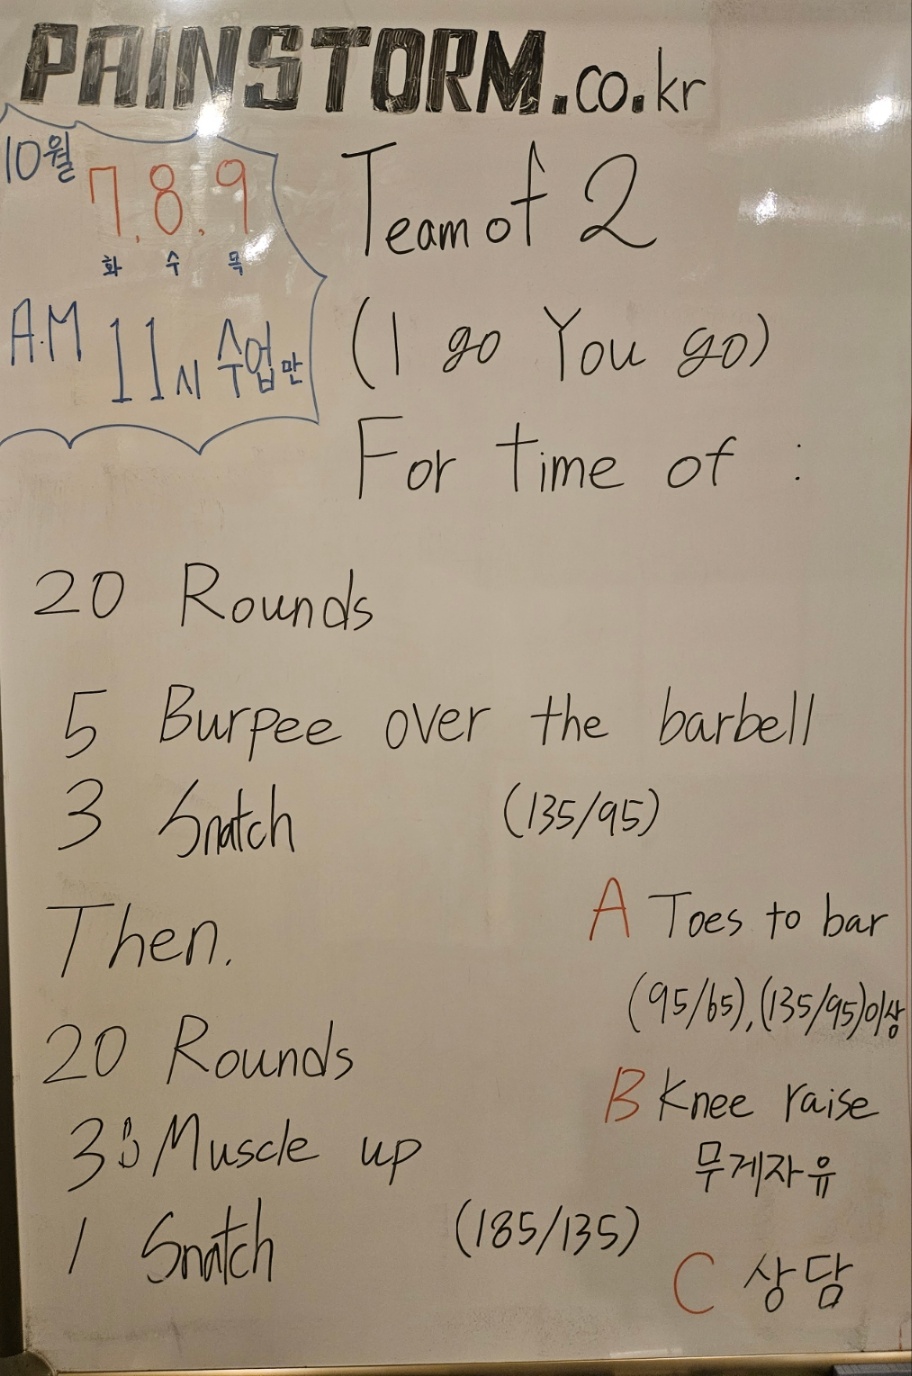 PAINSTORM.co.kr
10월
7.8.9
화 수 목
A.M 11시 수업만
Team of 2
(I go You go)
For time of :
20 Rounds
5 Burpee over the barbell
3 Snatch (135/95)
Then.
20 Rounds
3 Muscle up
1 Snatch (185/135)
A Toes to bar
(95/65), (135/95)이상
B Knee raise
무게자유
C 상담